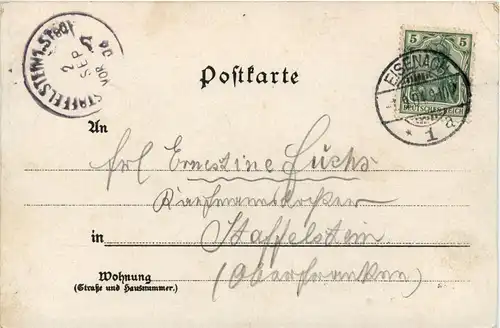 STAFFELSTEIN 1. STADT
2 SEP
VOR
04
5
EISENACH
DEUTSCHES REICH
* 1 a
Postkarte
An
Frl Ernestine Fuchs
Kaufmannstochter
in Staffelstein
Wohnung (Oberfranken)
(Straße und Hausnummer.)